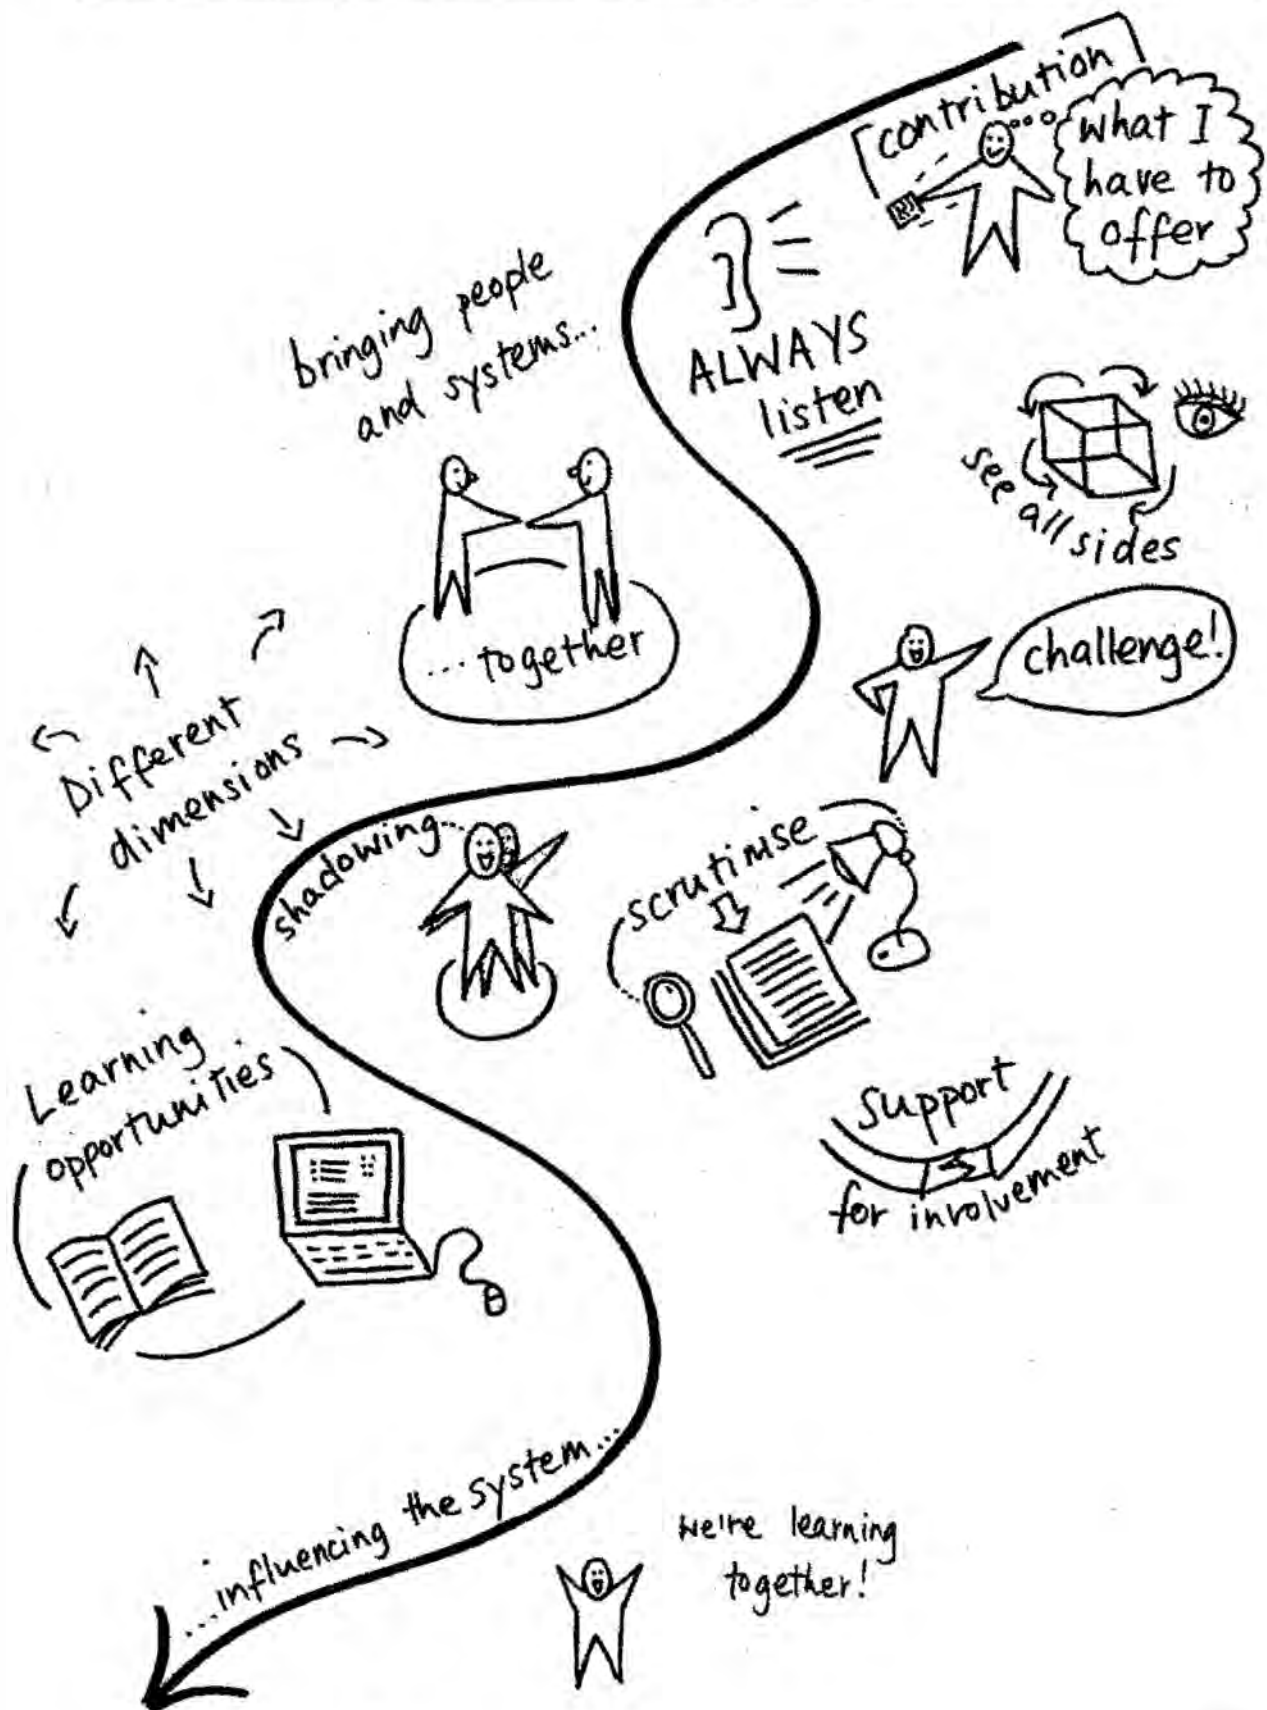 contribution
what I
have to
offer
bringing people
and systems...
ALWAYS
listen
see all sides
... together
challenge!
Different
dimensions
shadowing
scrutinise
Learning
opportunities
Support
for involvement
...influencing the system...
we're learning
together!